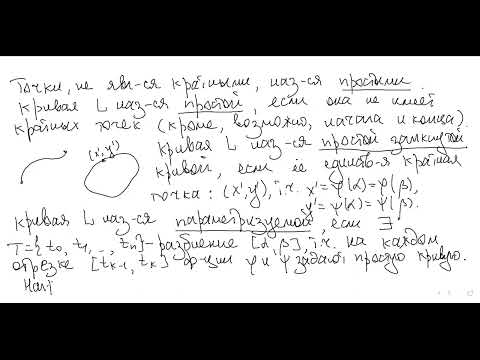 Точки, не явл-ся кратными, наз-ся простыми
Кривая L наз-ся простой, если она не имеет
кратных точек (кроме, возможно, начала и конца)
(x', y') Кривая L наз-ся простой замкнутой
кривой, если её единств-я кратная
точка: (x', y'), т.ч. x' = φ(α) = φ(β),
y' = ψ(α) = ψ(β).
Кривая L наз-ся параметризуемой, если ∃
T = {t₀, t₁, ..., tₙ} - разбиение [α, β], т.ч. на каждом
отрезке [tₖ₋₁, tₖ] ф-ции φ и ψ задают простую кривую.